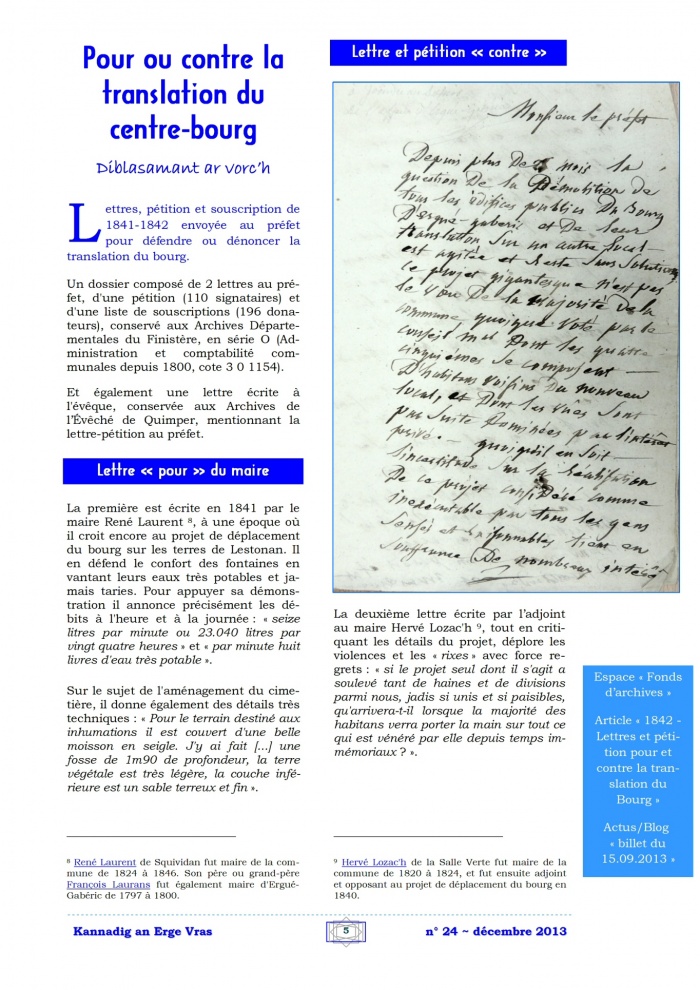 Pour ou contre la
translation du
centre-bourg
Diblasamant ar vorc'h
Lettres, pétition et souscription de
1841-1842 envoyée au préfet
pour défendre ou dénoncer la
translation du bourg.
Un dossier composé de 2 lettres au pré-
fet, d'une pétition (110 signataires) et
d'une liste de souscriptions (196 dona-
teurs), conservé aux Archives Départe-
mentales du Finistère, en série O (Ad-
ministration et comptabilité com-
munales depuis 1800, cote 3 0 1154).
Et également une lettre écrite à
l'évêque, conservée aux Archives de
l'Évêché de Quimper, mentionnant la
lettre-pétition au préfet.
Lettre « pour » du maire
La première est écrite en 1841 par le
maire René Laurent 8, à une époque où
il croit encore au projet de déplacement
du bourg sur les terres de Lestonan. Il
en défend le confort des fontaines en
vantant leurs eaux très potables et ja-
mais taries. Pour appuyer sa démons-
tration il annonce précisément les dé-
bits à l'heure et à la journée : « seize
litres par minute ou 23.040 litres par
vingt quatre heures » et « par minute huit
livres d'eau très potable ».
Sur le sujet de l'aménagement du cime-
tière, il donne également des détails très
techniques : « Pour le terrain destiné aux
inhumations il est couvert d'une belle
moisson en seigle. J'y ai fait [...] une
fosse de 1m90 de profondeur, la terre
végétale est très légère, la couche infé-
rieure est un sable terreux et fin ».
8 René Laurent de Squividan fut maire de la com-
mune de 1824 à 1846. Son père ou grand-père
François Laurans fut également maire d'Ergué-
Gabéric de 1797 à 1800.
Lettre et pétition « contre »
Monsieur le préfet
Depuis plus De mois la
question De la Démolition de
tous les édifices publics Du Bourg
D'ergué-gaberic et De leur
translation Sur un autre local
est agitée et Reste Sans Solution
Ce projet gigantesque n'est pas
le vœu De la Majorité De la
commune quoique voté par le
conseil mal Dont les quatre
cinquièmes Se composent
D'habitans voisins Du nouveau
local, et Dont les vues Sont
par Suite Dominées par l'intérêt
privé. - quoiqu'il en Soit
l'incertitude Sur la Réalisation
De ce projet considéré comme
inexécutable par tous les gens
sensés et raisonnables tient en
Souffrance De nombreux intérêts
La deuxième lettre écrite par l'adjoint
au maire Hervé Lozac'h 9, tout en criti-
quant les détails du projet, déplore les
violences et les « rixes » avec force re-
grets : « si le projet seul dont il s'agit a
soulevé tant de haines et de divisions
parmi nous, jadis si unis et si paisibles,
qu'arrivera-t-il lorsque la majorité des
habitans verra porter la main sur tout ce
qui est vénéré par elle depuis temps im-
mémoriaux ? ».
9 Hervé Lozac'h de la Salle Verte fut maire de la
commune de 1820 à 1824, et fut ensuite adjoint
et opposant au projet de déplacement du bourg en
1840.
Espace « Fonds
d'archives »
Article « 1842 -
Lettres et péti-
tion pour et
contre la tran-
slation du
Bourg »
Actus/Blog
« billet du
15.09.2013 »
Kannadig an Erge Vras
5
n° 24 ~ décembre 2013